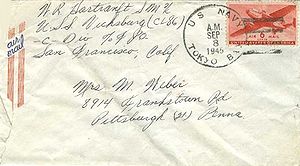 W R Hartranft S M 2/c
U S S Vicksburg (CL86)
C Div c/o F P O
San Francisco, Calif
air mail
U.S. NAVY
A.M.
SEP
8
1945
TOKYO B
6¢
AIR MAIL
UNITED STATES OF AMERICA
Mrs. M Weber
8914 Frankstown Rd
Pittsburgh (21) Penna